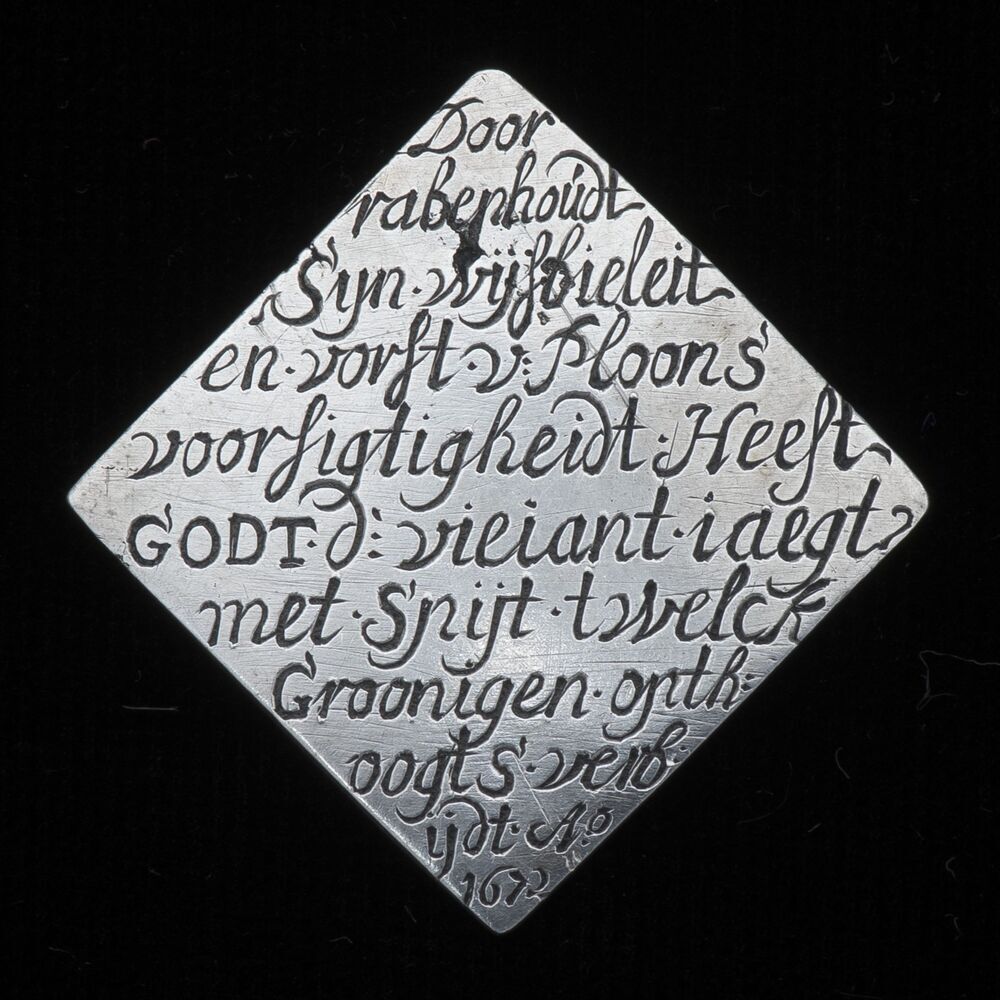 Door
rabenhoudt
Syn·wijsbieleit
en·vorst·v:Ploons
voorsigtigheidt:Heeft
GODT·d:vieiant·iaegt
met·Spijt·twelck
Groonigen·opth:
oogts·verb:
ijdt·Ao
1672